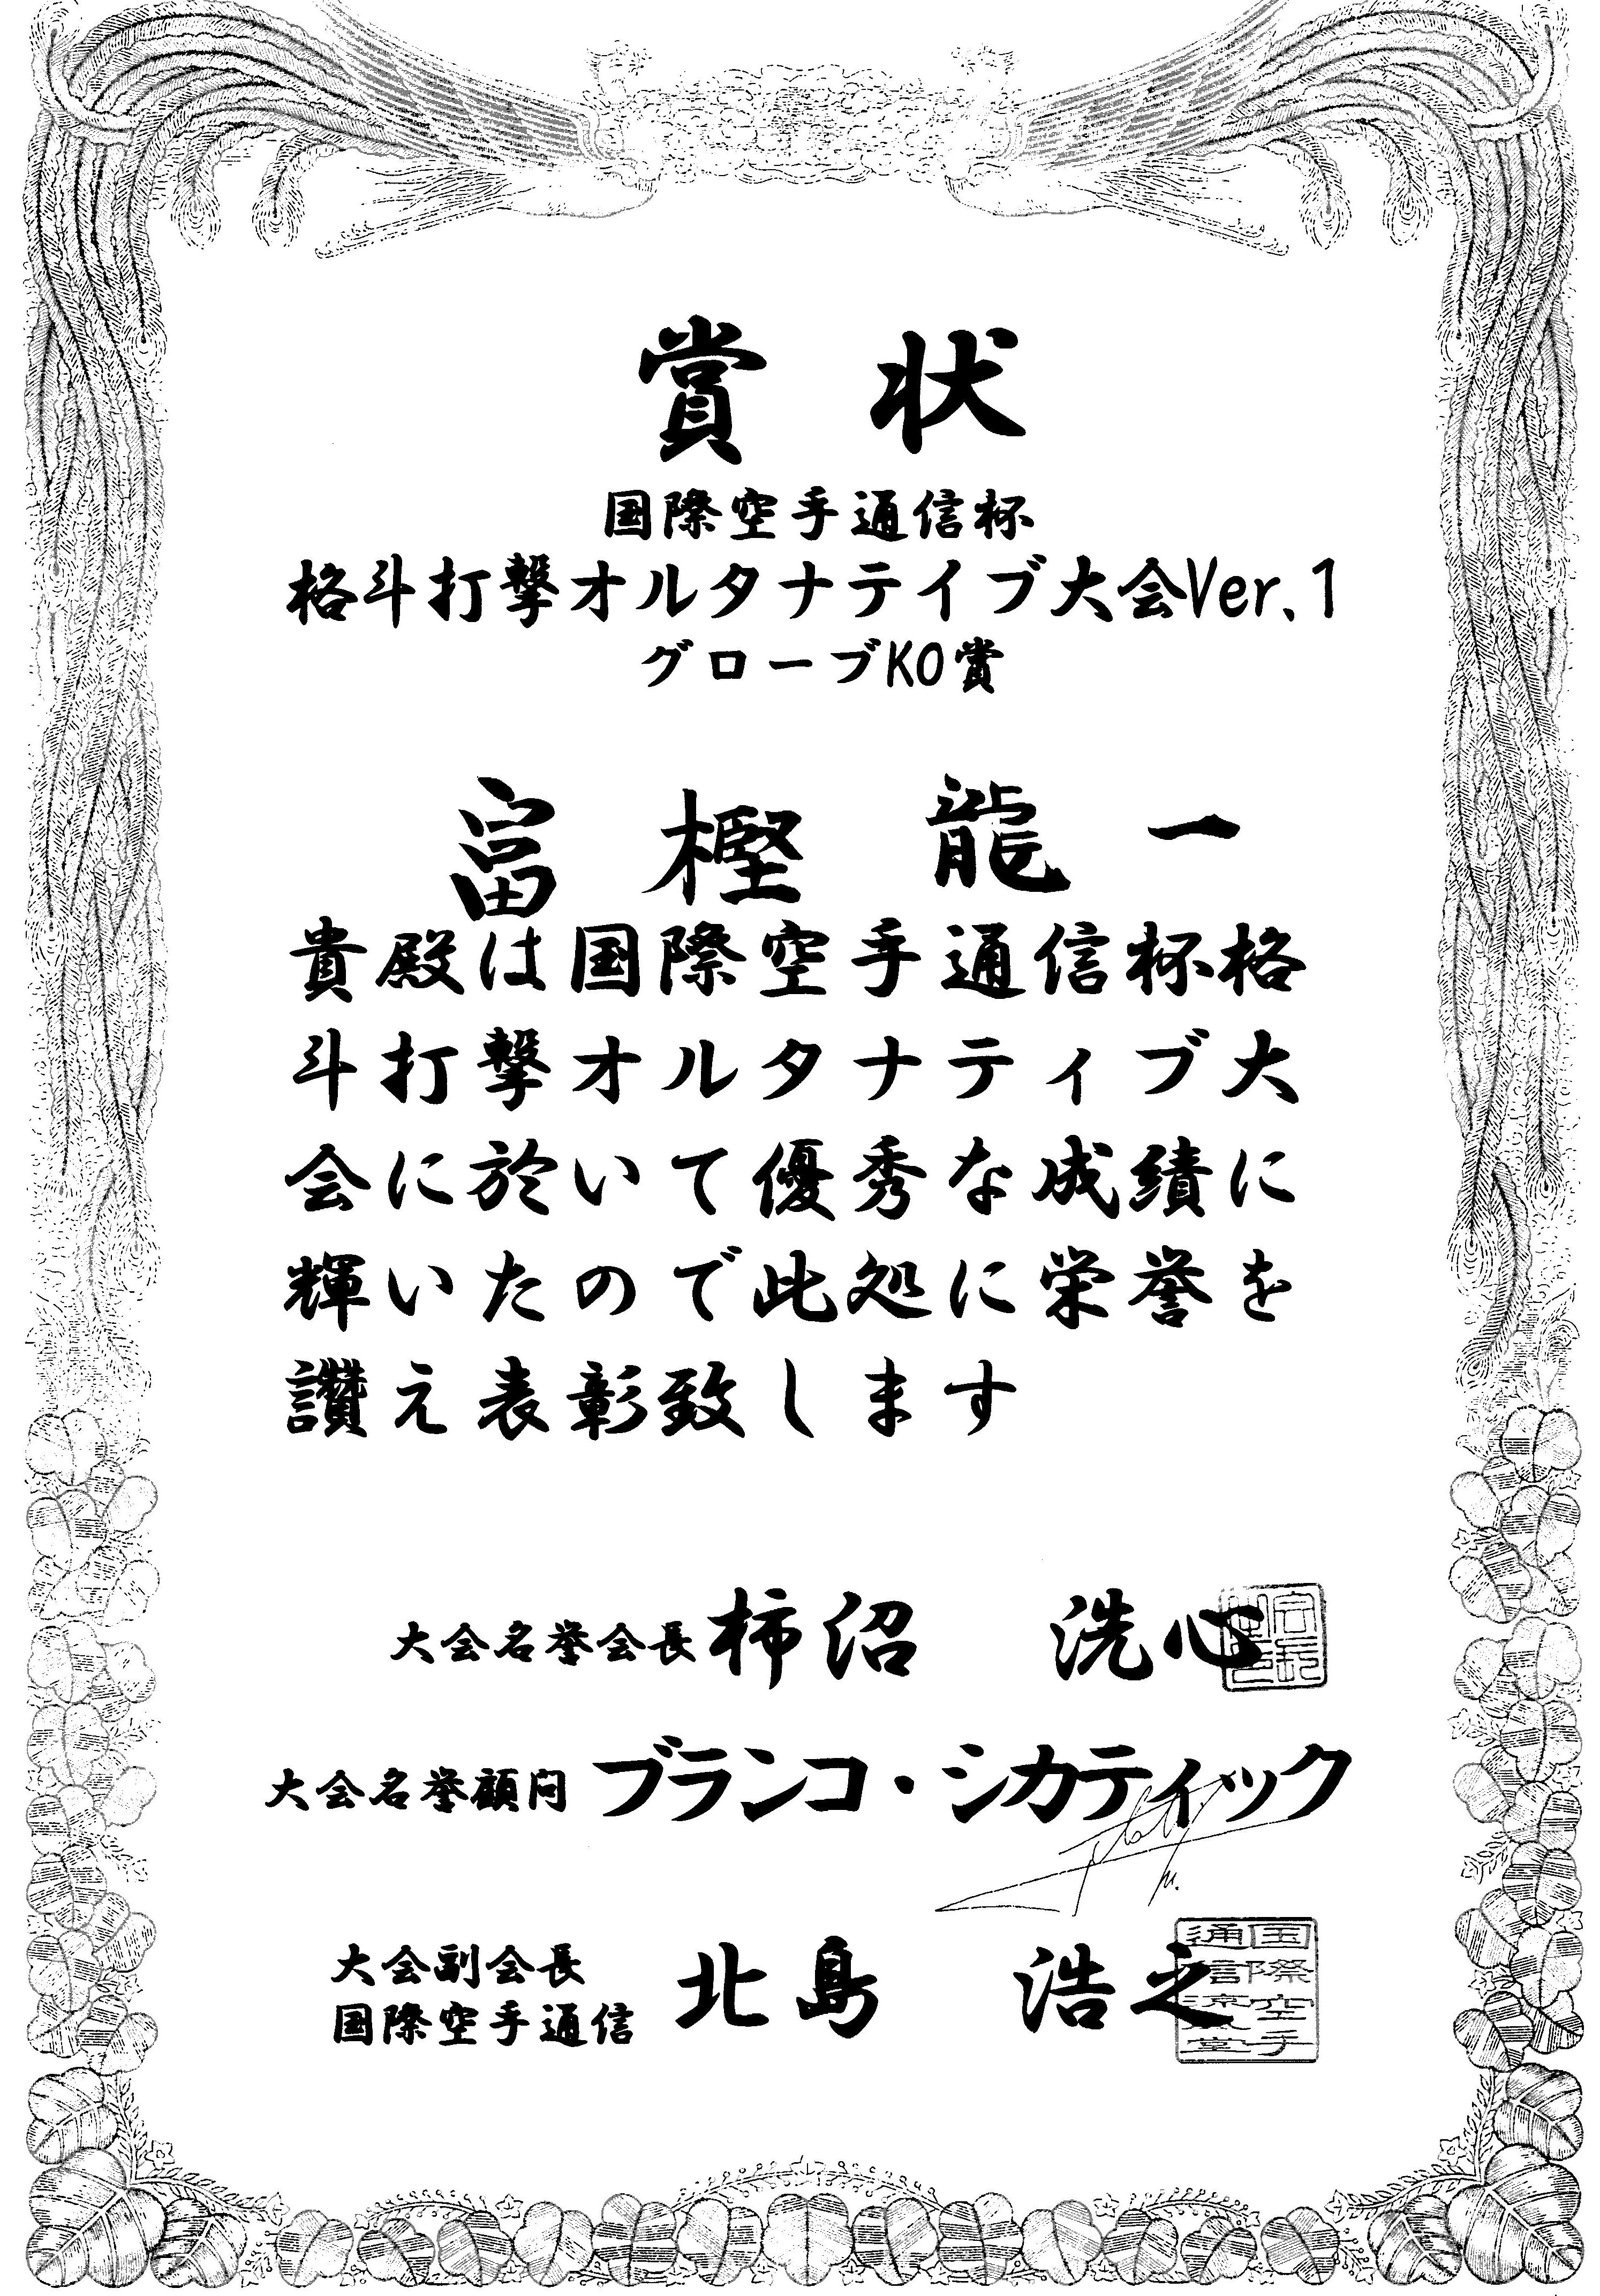 賞状
国際空手通信杯
格斗打撃オルタナテイブ大会Ver.1
グローブKO賞
富樫龍一
貴殿は国際空手通信杯格
斗打撃オルタナティブ大
会に於いて優秀な成績に
輝いたので此処に栄誉を
讃え表彰致します
大会名誉会長 柿沼 洗心
大会名誉顧問 ブランコ・シカティック
大会副会長
国際空手通信 北島 浩之
国際空手
通信